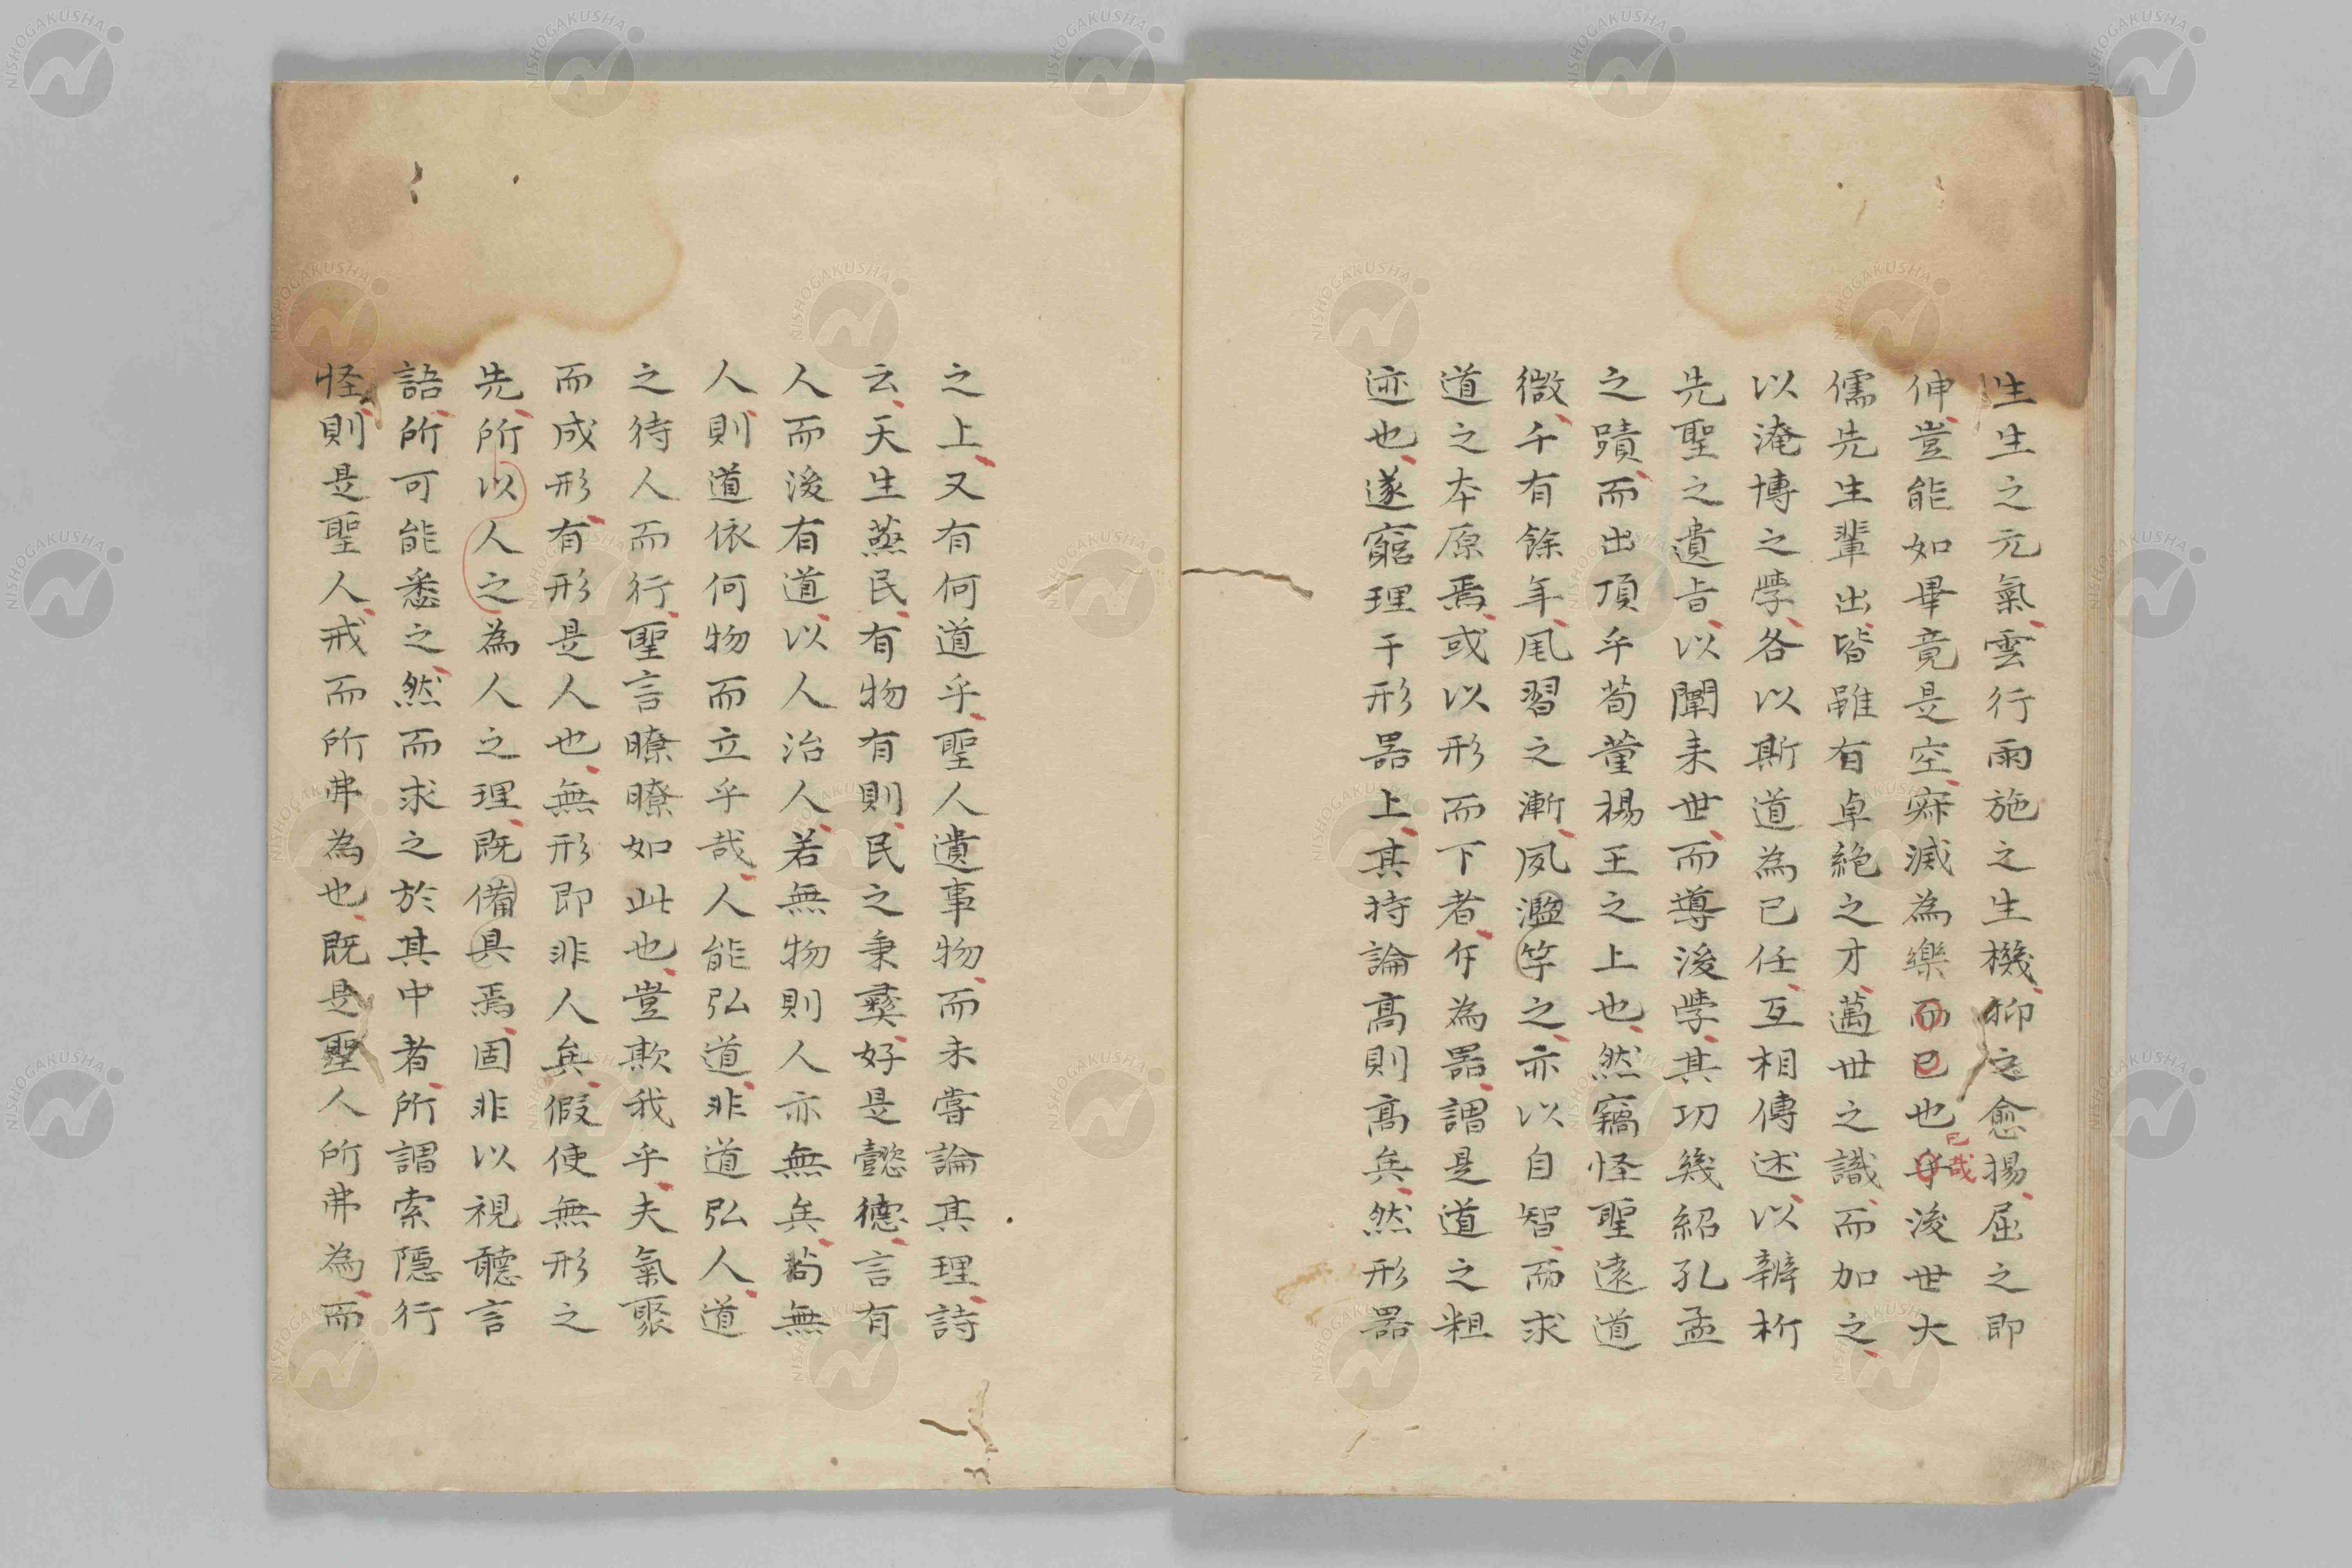 生生之元氣雲行雨施之生機抑之愈揚屈之即
伸豈能如畢竟是空寂滅為樂而已也乎後世大
已哉
儒先生輩出皆雖有卓絶之才邁世之識而加之
以淹博之學各以斯道為己任互相傳述以辨析
先聖之遺旨以闡来世而導後學其功幾紹孔孟
之蹟而出頂乎荀董楊王之上也然竊怪聖遠道
微千有餘年風習之漸夙濫竽之亦以自智而求
道之本原焉或以形而下者乍為器謂是道之粗
迹也遂窮理于形器上其持論高則高矣然形器
之上又有何道乎聖人遺事物而未嘗論其理詩
云天生蒸民有物有則民之秉彛好是懿德言有
人而後有道以人治人若無物則人亦無矣苟無
人則道依何物而立乎哉人能弘道非道弘人道
之待人而行聖言瞭瞭如此也豈欺我乎夫氣聚
而成形有形是人也無形即非人矣假使無形之
先所以人之為人之理既備具焉固非以視聽言
語所可能悉之然而求之於其中者所謂索隱行
怪則是聖人戒而所弗為也既是聖人所弗為而
NISHOGAKUSHA